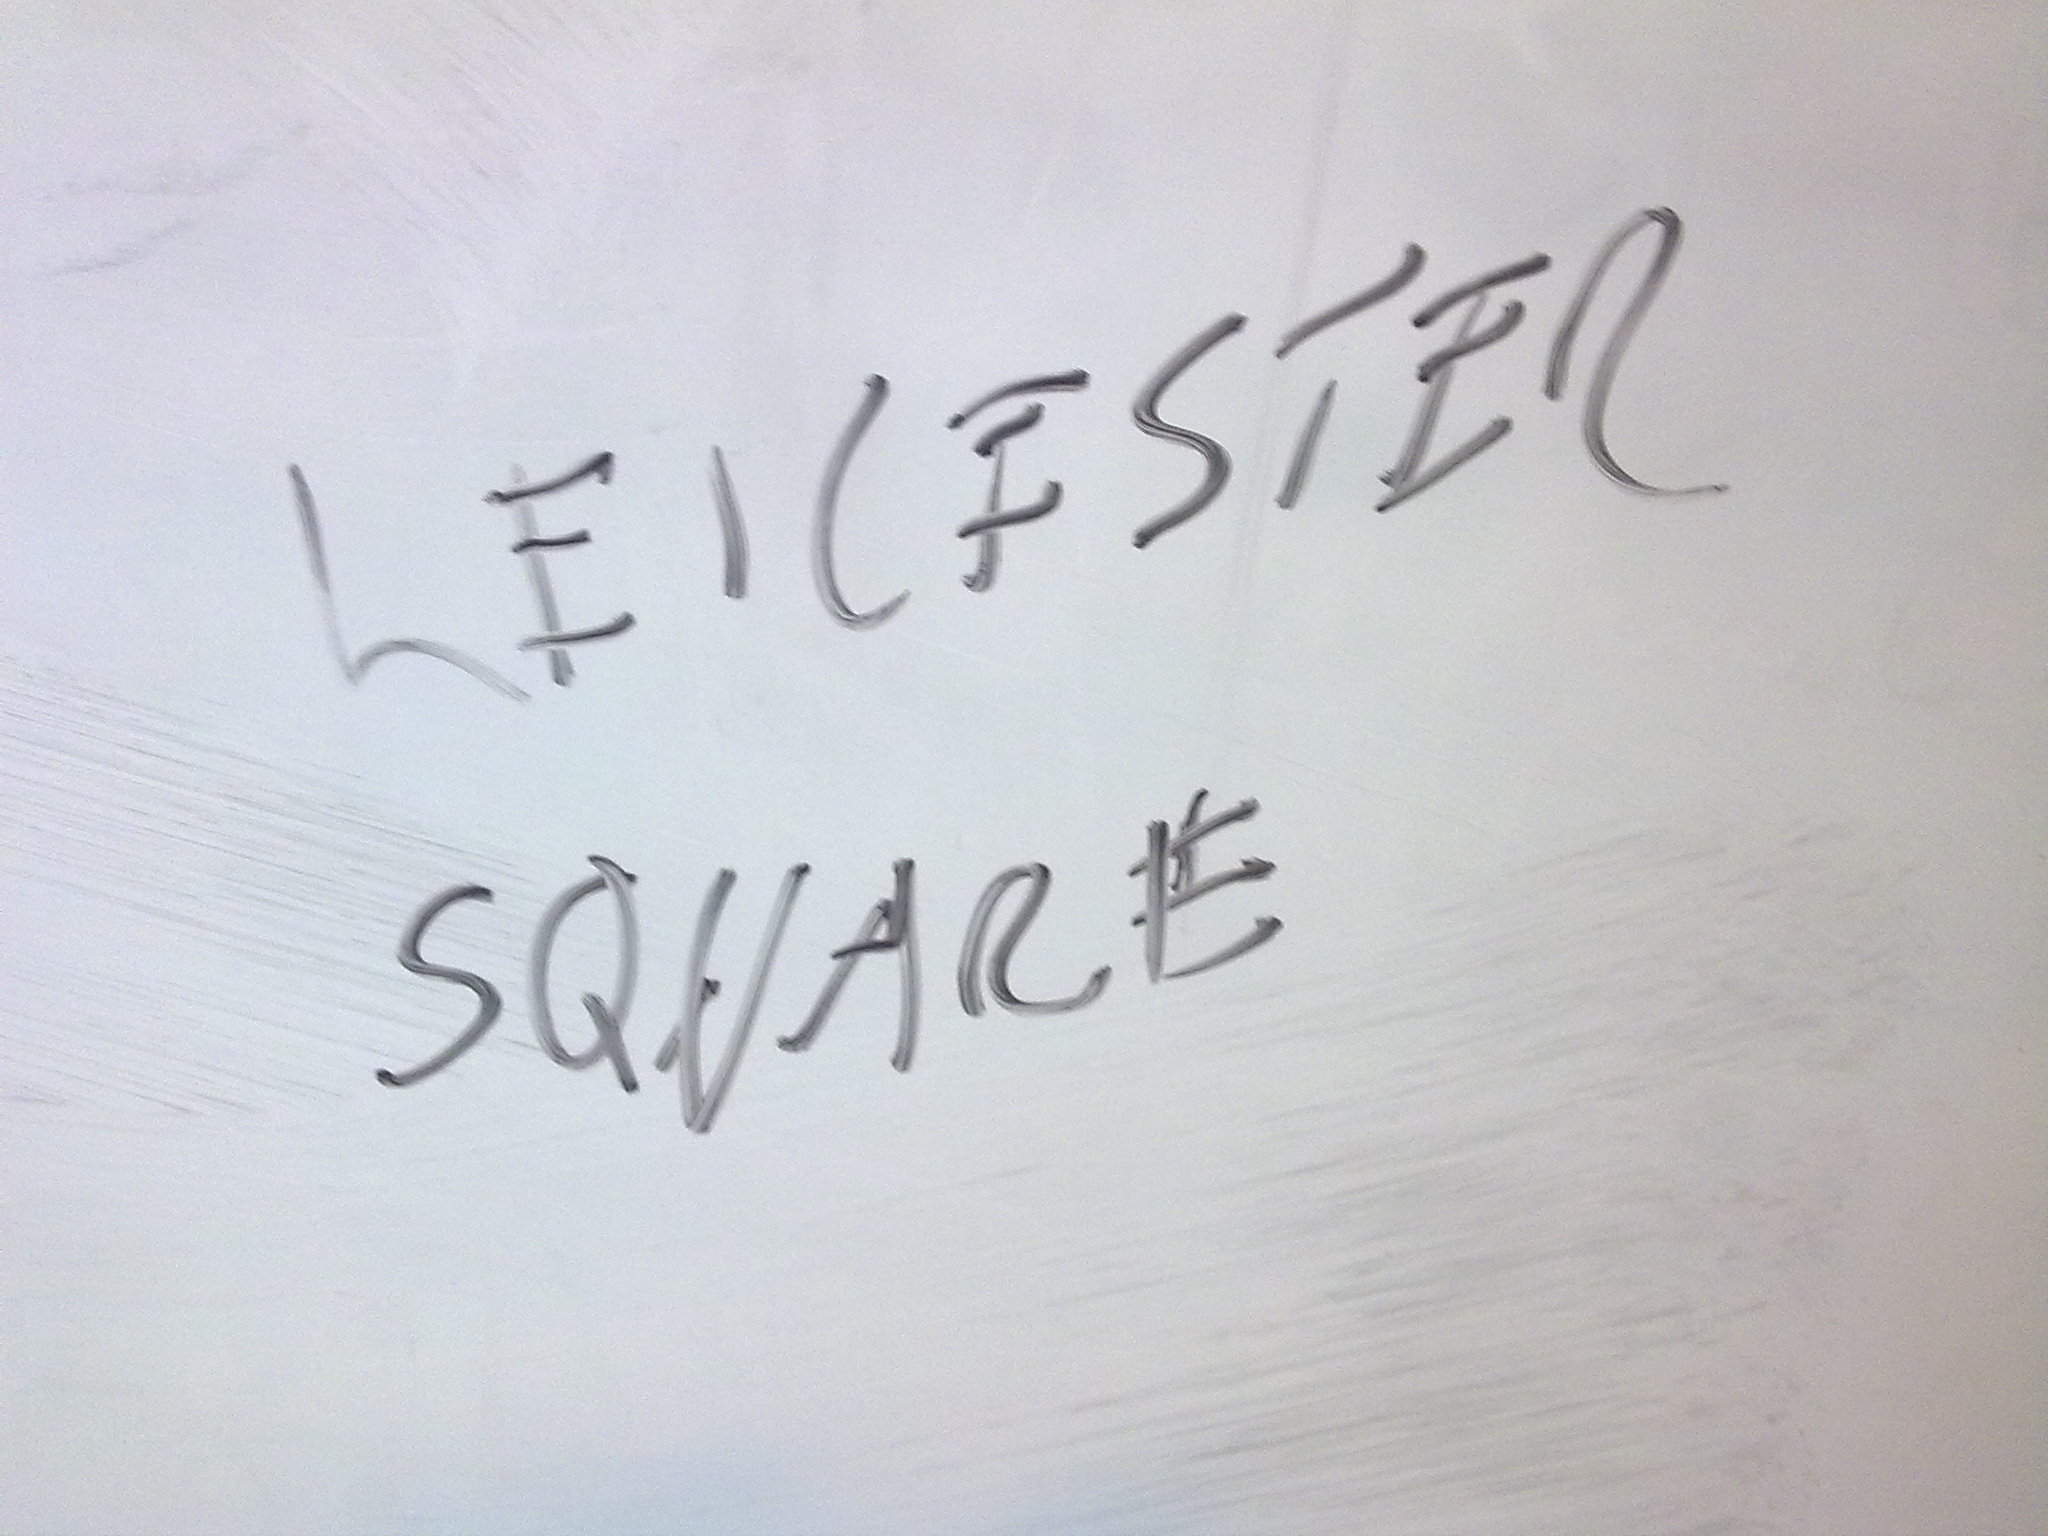 LEICESTER
SQUARE